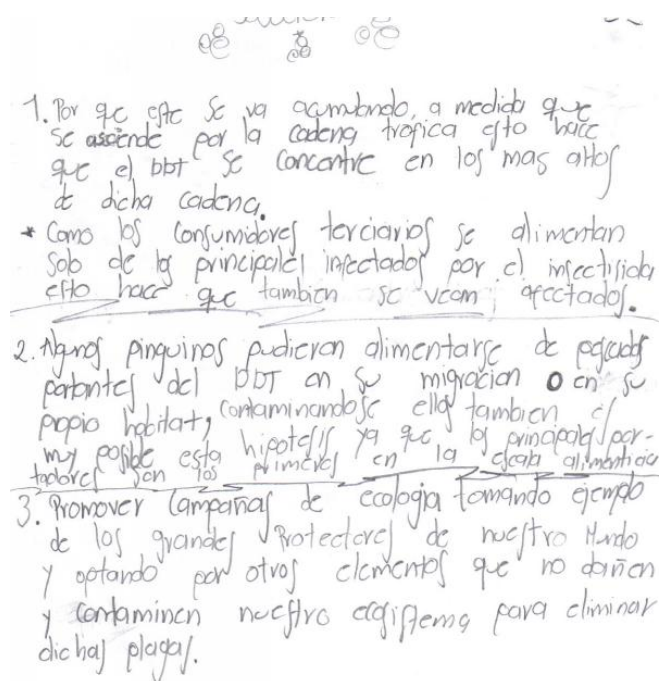 1. Por qe este se va acumulando, a medida que
se asciende por la cadena trofica esto hace
que el DDT se concentre en los mas altos
de dicha cadena.
* Como los consumidores terciarios se alimentan
solo de los principales infectados por el insectisida
esto hace que tambien se vean afectados.
2. Algunos pinguinos pudieron alimentarse de pescados
portantes del DDT en su migracion o en su
propio habitat, contaminandose ellos tambien es
muy posible esta hipotesis ya que los principales por-
tadores son los primeros en la escala alimenticia
3. Promover campañas de ecologia tomando ejemplo
de los grandes Protectores de nuestro Mundo
y optando por otros elementos que no dañen
y contaminen nuestro ecosistema para eliminar
dichas plagas.